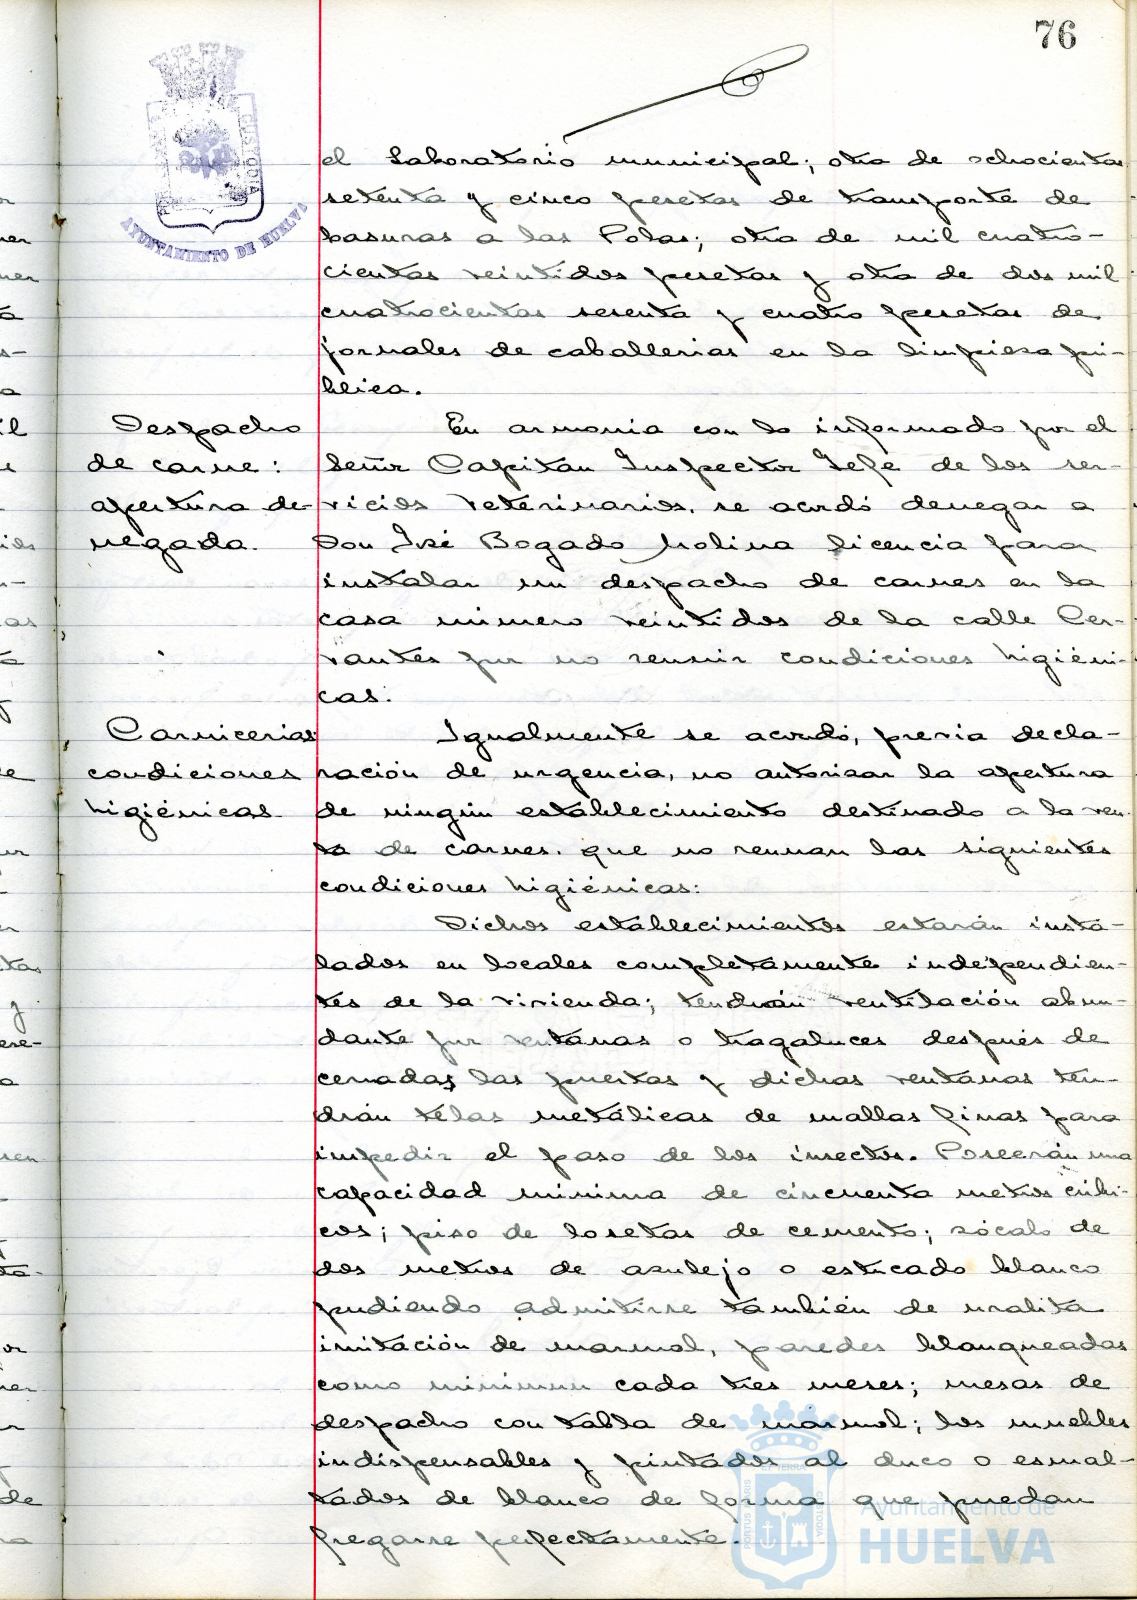 76
AYUNTAMIENTO DE HUELVA
el Laboratorio municipal; otra de ochocientas
setenta y cinco pesetas de transporte de
basuras a las Polas; otra de mil cuatro-
cientas veintidos pesetas y otra de dos mil
cuatrocientas sesenta y cuatro pesetas de
jornales de caballerias en la limpieza pú-
blica.
Despacho
de carne:
apertura de-
negada.
En armonia con lo informado por el
Señor Capitan Inspector Jefe de los ser-
vicios Veterinarios, se acordó denegar a
Don José Bogado Molina licencia para
instalar un despacho de carnes en la
casa número veintidos de la calle Cer-
vantes por no reunir condiciones higiéni-
cas.
Carnicerias
condiciones
higiénicas.
Igualmente se acordó, previa decla-
ración de urgencia, no autorizar la apertura
de ningún establecimiento destinado a la ven-
ta de carnes, que no reunan las siguientes
condiciones higiénicas:
Dichos establecimientos estarán insta-
lados en locales completamente independien-
tes de la vivienda; tendrán ventilación abun-
dante por ventanas o tragaluces después de
cerradas las puertas y dichas ventanas ten-
drán telas metálicas de mallas finas para
impedir el paso de los insectos. Poseerán una
capacidad minima de cincuenta metros cúbi-
cos; piso de losetas de cemento; zócalo de
dos metros de azulejo o estucado blanco
pudiendo admitirse también de uralita
imitación de marmol, paredes blanqueadas
como minimun cada tres meses; mesas de
despacho con tabla de marmol; los muebles
indispensables y pintados al duco o esmal-
tados de blanco de forma que puedan
fregarse perfectamente.
Ayuntamiento de
HUELVA